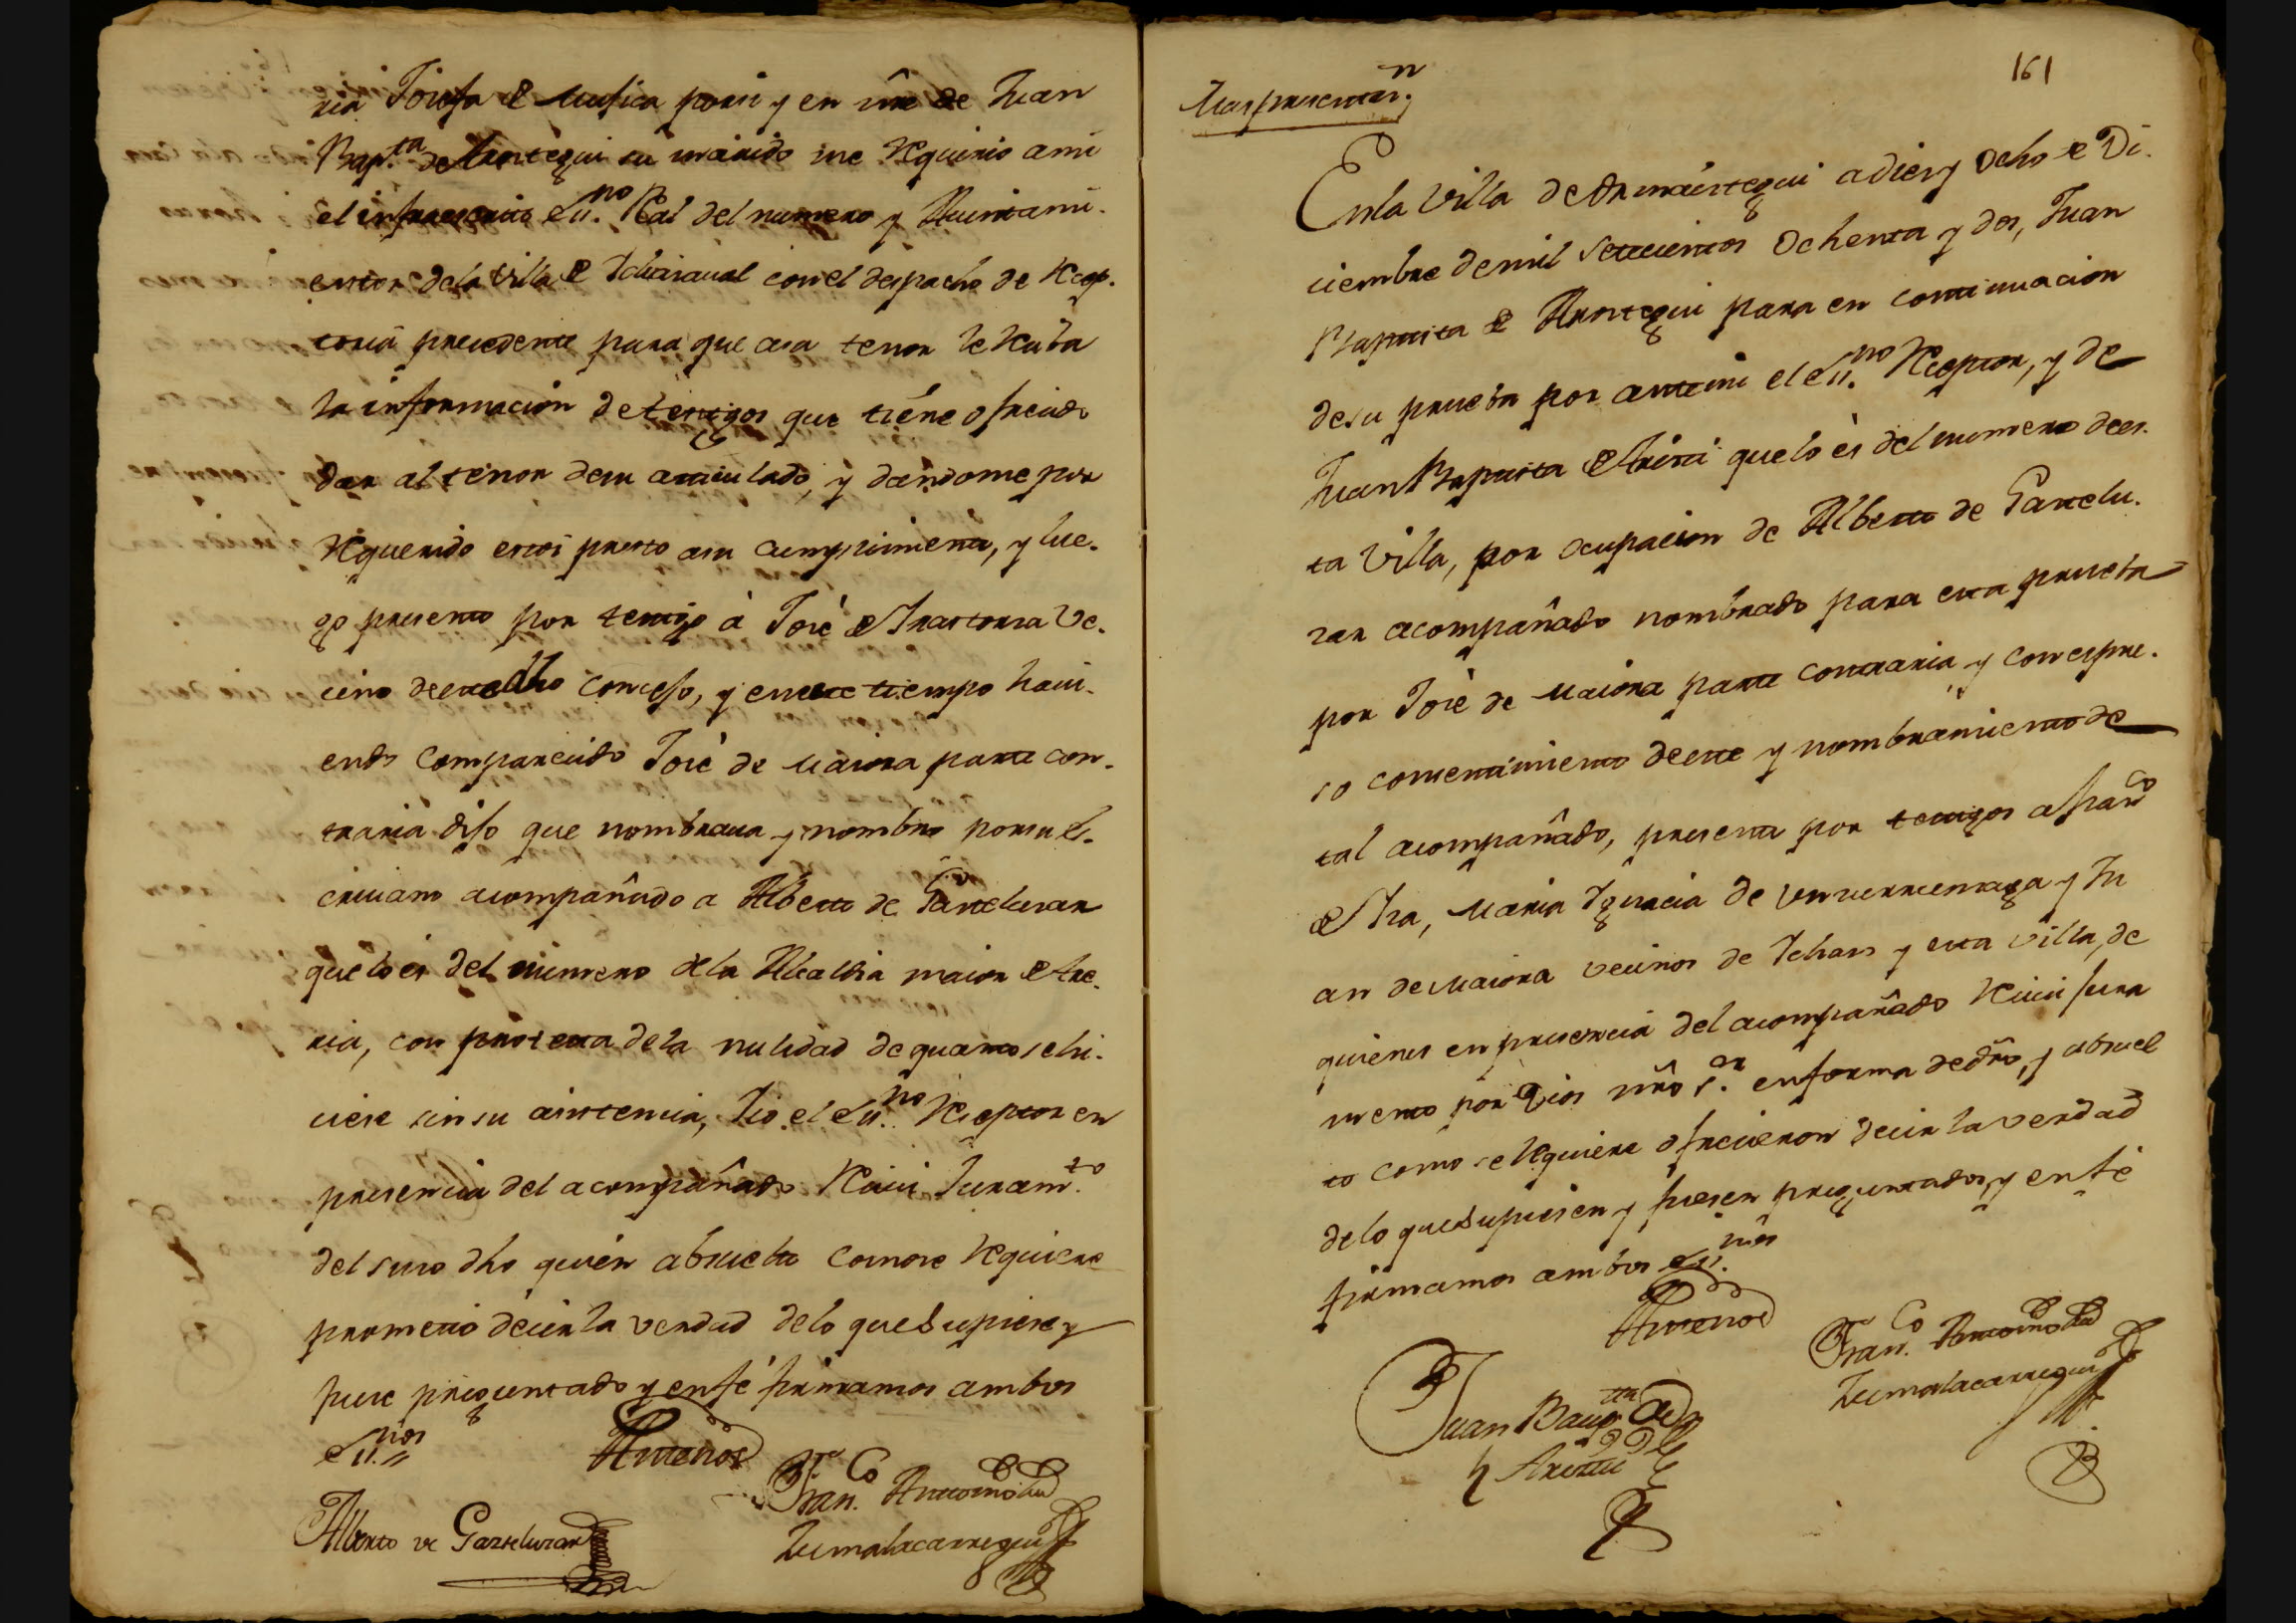 ria Josefa de Mugica por si y en nre de Juan
Bap.ta de Arostegui su marido me requirio a mi
el infraescrito ess.no Real del numero y Aiuntami-
entos de la Villa de Ichasaval con el despacho de recep-
toria precedente para que a su tenor le reciba
la informacion de testigos que tiene ofrecido
dar al tenor de su articulado, y dandome por
requerido estoi presto a su cumplimiento, y lue-
go presento por testigo à José de Irastorza Ve-
cino de este dho concejo, y en este tiempo havi-
endo comparecido José de Maiora parte con-
traria dijo que nombrava y nombro por su es-
crivano acompañado a Alberto de Gastelurrar
que lo es del numero de la Alcaldia maior de Are-
ria, con protexta de la nulidad de quanto se hi-
ciese sin su asistencia, Yo el ess.no Receptor en
presencia del acompañado Recivi Juram.to
del suso dho quien absuelto como se requiere
prometió decir la verdad de lo que Supiere y
fuese preguntado y en fé firmamos ambos
ess.nos
Ante nos
Alberto de Gaztelurrar
Fran.co Antonio de
Zumalacarregui
161
Mas presentaz.n
En la Villa de Ormáiztegui a diez y ocho de Di-
ciembre de mil setecientos ochenta y dos, Juan
Baptista de Arostegui para en continuacion
de su prueba por ante mi el ess.no Receptor, y de
Juan Baptista de Aristi que lo es del numero de es-
ta Villa, por ocupacion de Alberto de Gastelu-
rrar acompañado nombrado para esta prueba
por José de Maiora parte contraria y con expre-
so consentimiento de este y nombramiento de
tal acompañado, presenta por testigos a Fran.co
de Isa, Maria Ignacia de Unzurrunzaga y Ju
an de Maiora vecinos de Ichaso y esta villa, de
quienes en presencia del acompañado Recivi jura
mento por Dios nro s.or en forma de dro, y absuel
to como se requiere ofrecieron decir la verdad
de lo que Supiesen y fuesen preguntados, y en fé
firmamos ambos ess.nos
Ante nos
Juan Baup.tta de
Aristi
Fran.co Antonio de
Zumalacarregui